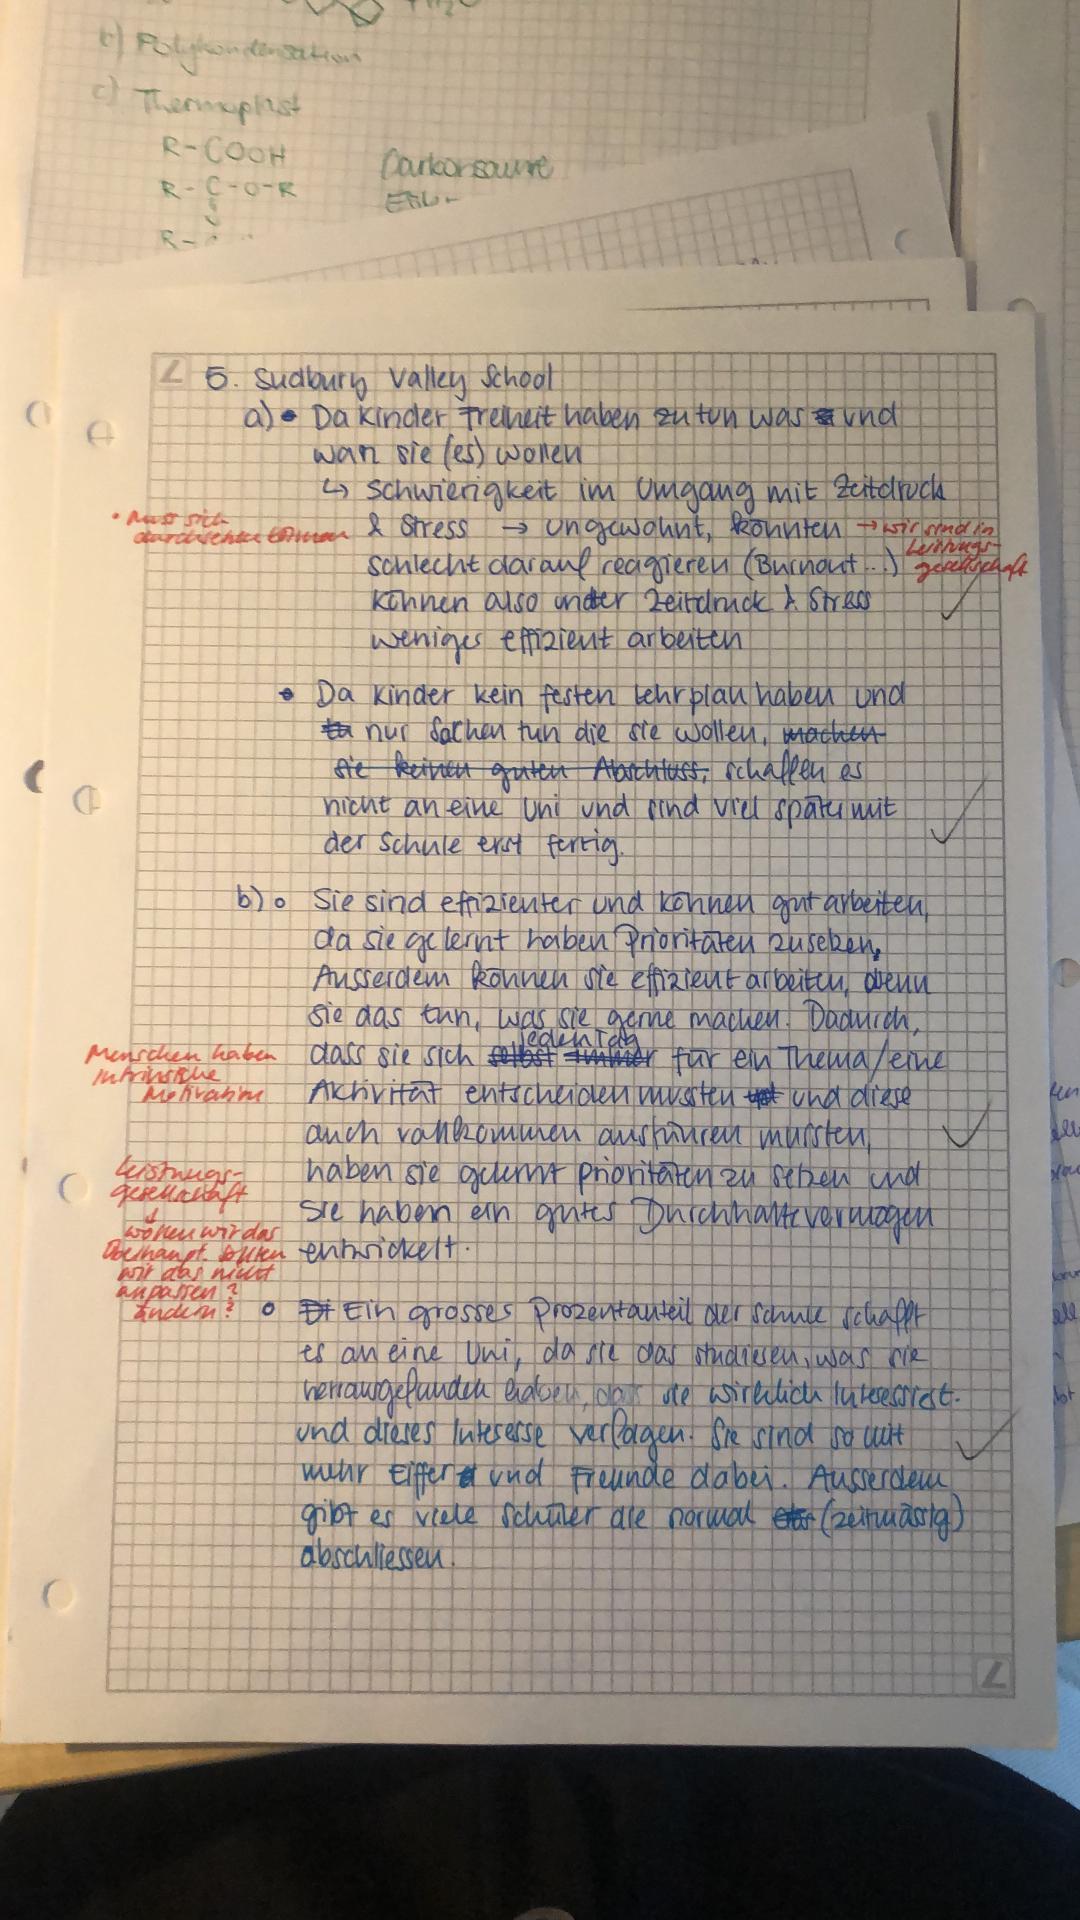 b) Polykondensation
c) Thermoplast
R-COOH
R-C-O-R
R-
5. Sudbury Valley School
a) • Da Kinder Freiheit haben zu tun was und
wan sie (es) wollen
↳ Schwierigkeit im Umgang mit Zeitdruck
& Stress → ungewohnt, könnten → wir sind in
Leistungs-
gesellschaft
• Muss sich
durchsetzen können
schlecht darauf reagieren (Burnout...)
können also unter Zeitdruck & Stress
weniger effizient arbeiten
• Da Kinder kein festen Lehrplan haben und
nur Sachen tun die sie wollen, machen
sie keinen guten Abschluss, schaffen es
nicht an eine Uni und sind viel später mit
der Schule erst fertig.
b) o Sie sind effizienter und können gut arbeiten,
da sie gelernt haben Prioritäten zu setzen.
Ausserdem können sie effizient arbeiten, wenn
sie das tun, was sie gerne machen. Dadurch,
jeden Tag
dass sie sich selbst immer für ein Thema/eine
Aktivität entscheiden mussten und diese
auch vollkommen ausführen mussten,
haben sie gelernt Prioritäten zu setzen und
sie haben ein gutes Durchhaltevermögen
entwickelt.
Menschen haben
intrinsische
Motivation
Leistungs-
gesellschaft
↓
wollen wir das
überhaupt. Sollten
wir das nicht
anpassen?
ändern?
o Ein grosses Prozentanteil der Schule schafft
es an eine Uni, da sie das studieren, was sie
herrausgefunden haben, das sie wirklich interessiert.
und dieses Interesse verfolgen. Sie sind somit
mehr Eiffer und Freunde dabei. Ausserdem
gibt es viele Schüler die normal (zeitmässig)
abschliessen.